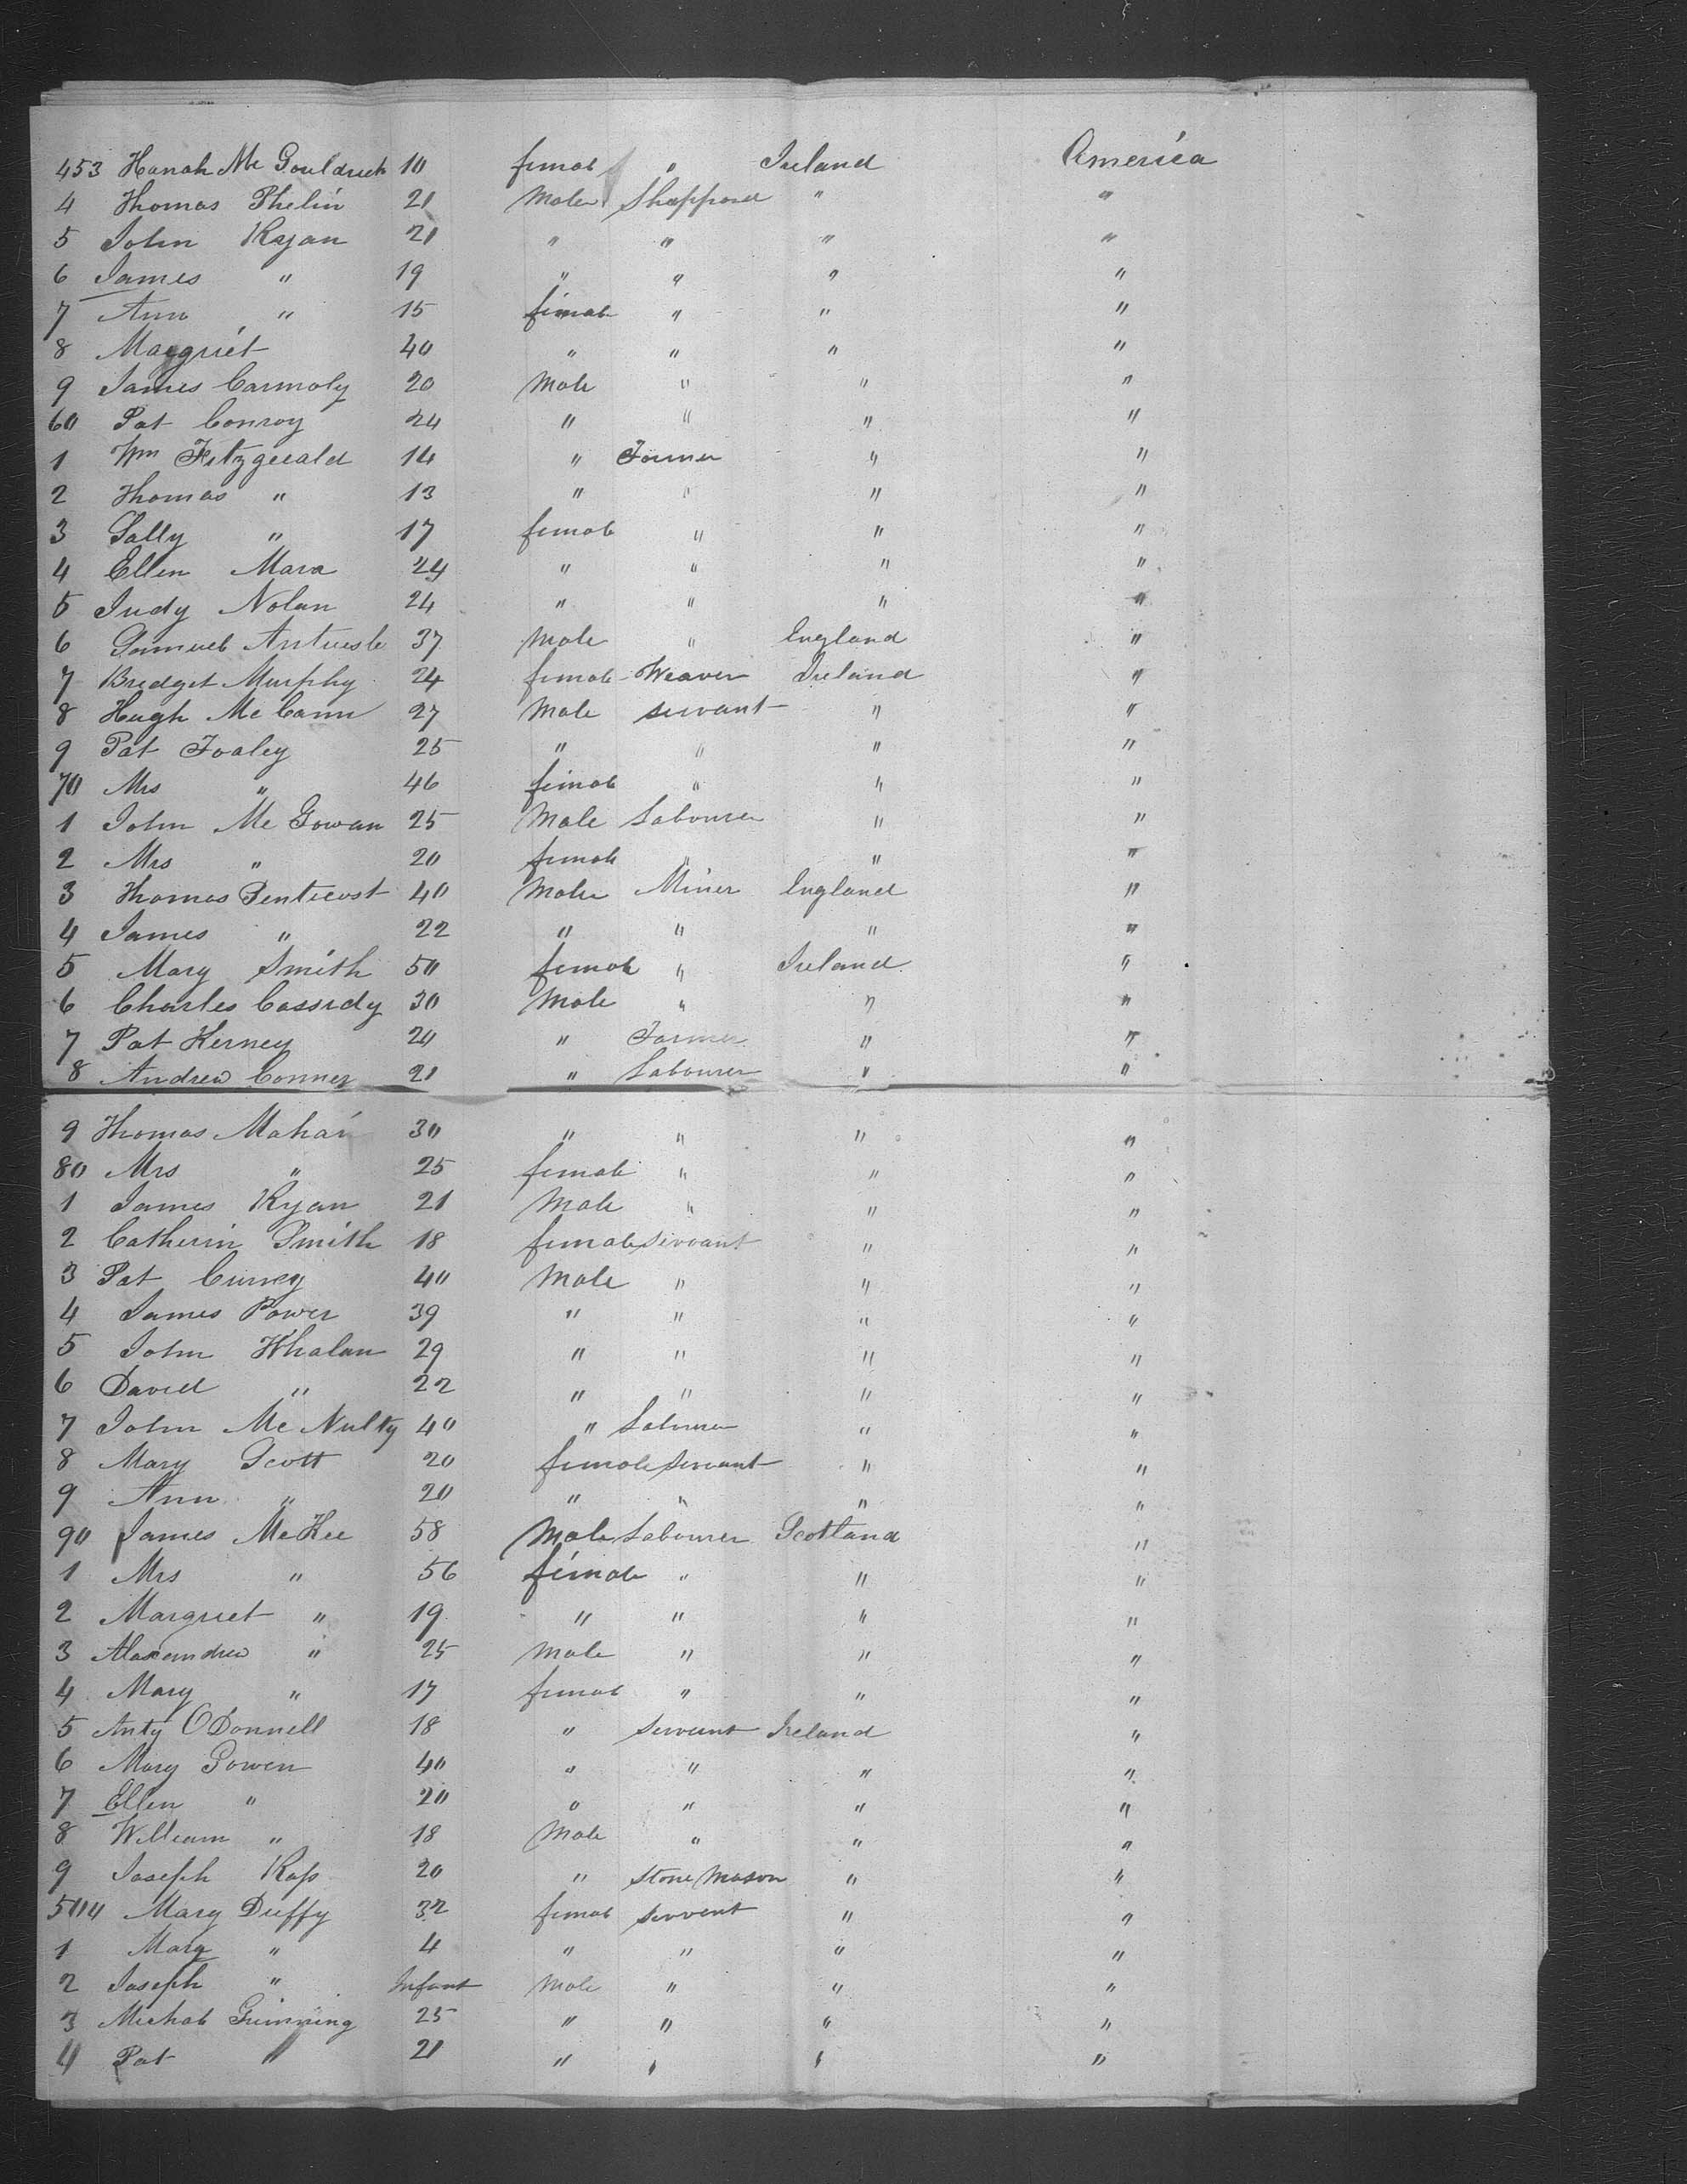 453 Hanah Mc Gouldrick 10 female " Ireland America
4 Thomas Phelin 21 Male " "
5 John Ryan 21 " " " "
6 James " 19 " " " "
7 Ann " 15 female " " "
8 Margriet 40 " " " "
9 James Carmoly 20 Male " " "
60 Pat Conroy 24 " " " "
1 Wm Fitzgerald 14 " Farmer " "
2 Thomas " 13 " " " "
3 Sally " 17 female " " "
4 Ellen Mara 24 " " " "
5 Judy Nolan 24 " " " "
6 Samuel 37 Male " England "
7 Bridget Murphy 24 female Weaver Ireland "
8 Hugh Mc Cann 27 Male servant " "
9 Pat Foaley 25 " " " "
70 Mrs " 46 female " " "
1 John Mc Gowan 25 Male Labourer " "
2 Mrs " 20 female " " "
3 Thomas Penticost 40 Male Miner England "
4 James " 22 " " " "
5 Mary Smith 50 female " Ireland "
6 Charles Cassidy 30 Male " " "
7 Pat Kerney 20 " Farmer " "
8 Andrew Conner 21 " Labourer " "
9 Thomas Mahan 30 " " " "
80 Mrs " 25 female " " "
1 James Ryan 21 Male " " "
2 Catherin Smith 18 female servant " "
3 Pat 40 Male " " "
4 James Power 39 " " " "
5 John Whalan 29 " " " "
6 David " 22 " " " "
7 John Mc Nulty 40 " Labourer " "
8 Mary Scott 20 female servant " "
9 Ann " 20 " " " "
90 James McKee 58 Male Labourer Scotland "
1 Mrs " 56 female " " "
2 Margriet " 19 " " " "
3 Alaxandrew " 25 Male " " "
4 Mary " 17 female " " "
5 Anty ODonnell 18 " servant Ireland "
6 Mary Gowen 40 " " " "
7 Ellen " 20 " " " "
8 William " 18 Male " " "
9 Joseph Ross 20 " Stone Mason " "
500 Mary Duffy 32 female servent " "
1 Mary " 4 " " " "
2 Joseph " Infant Male " " "
3 Michal 25 " " " "
4 Pat " 21 " " " "